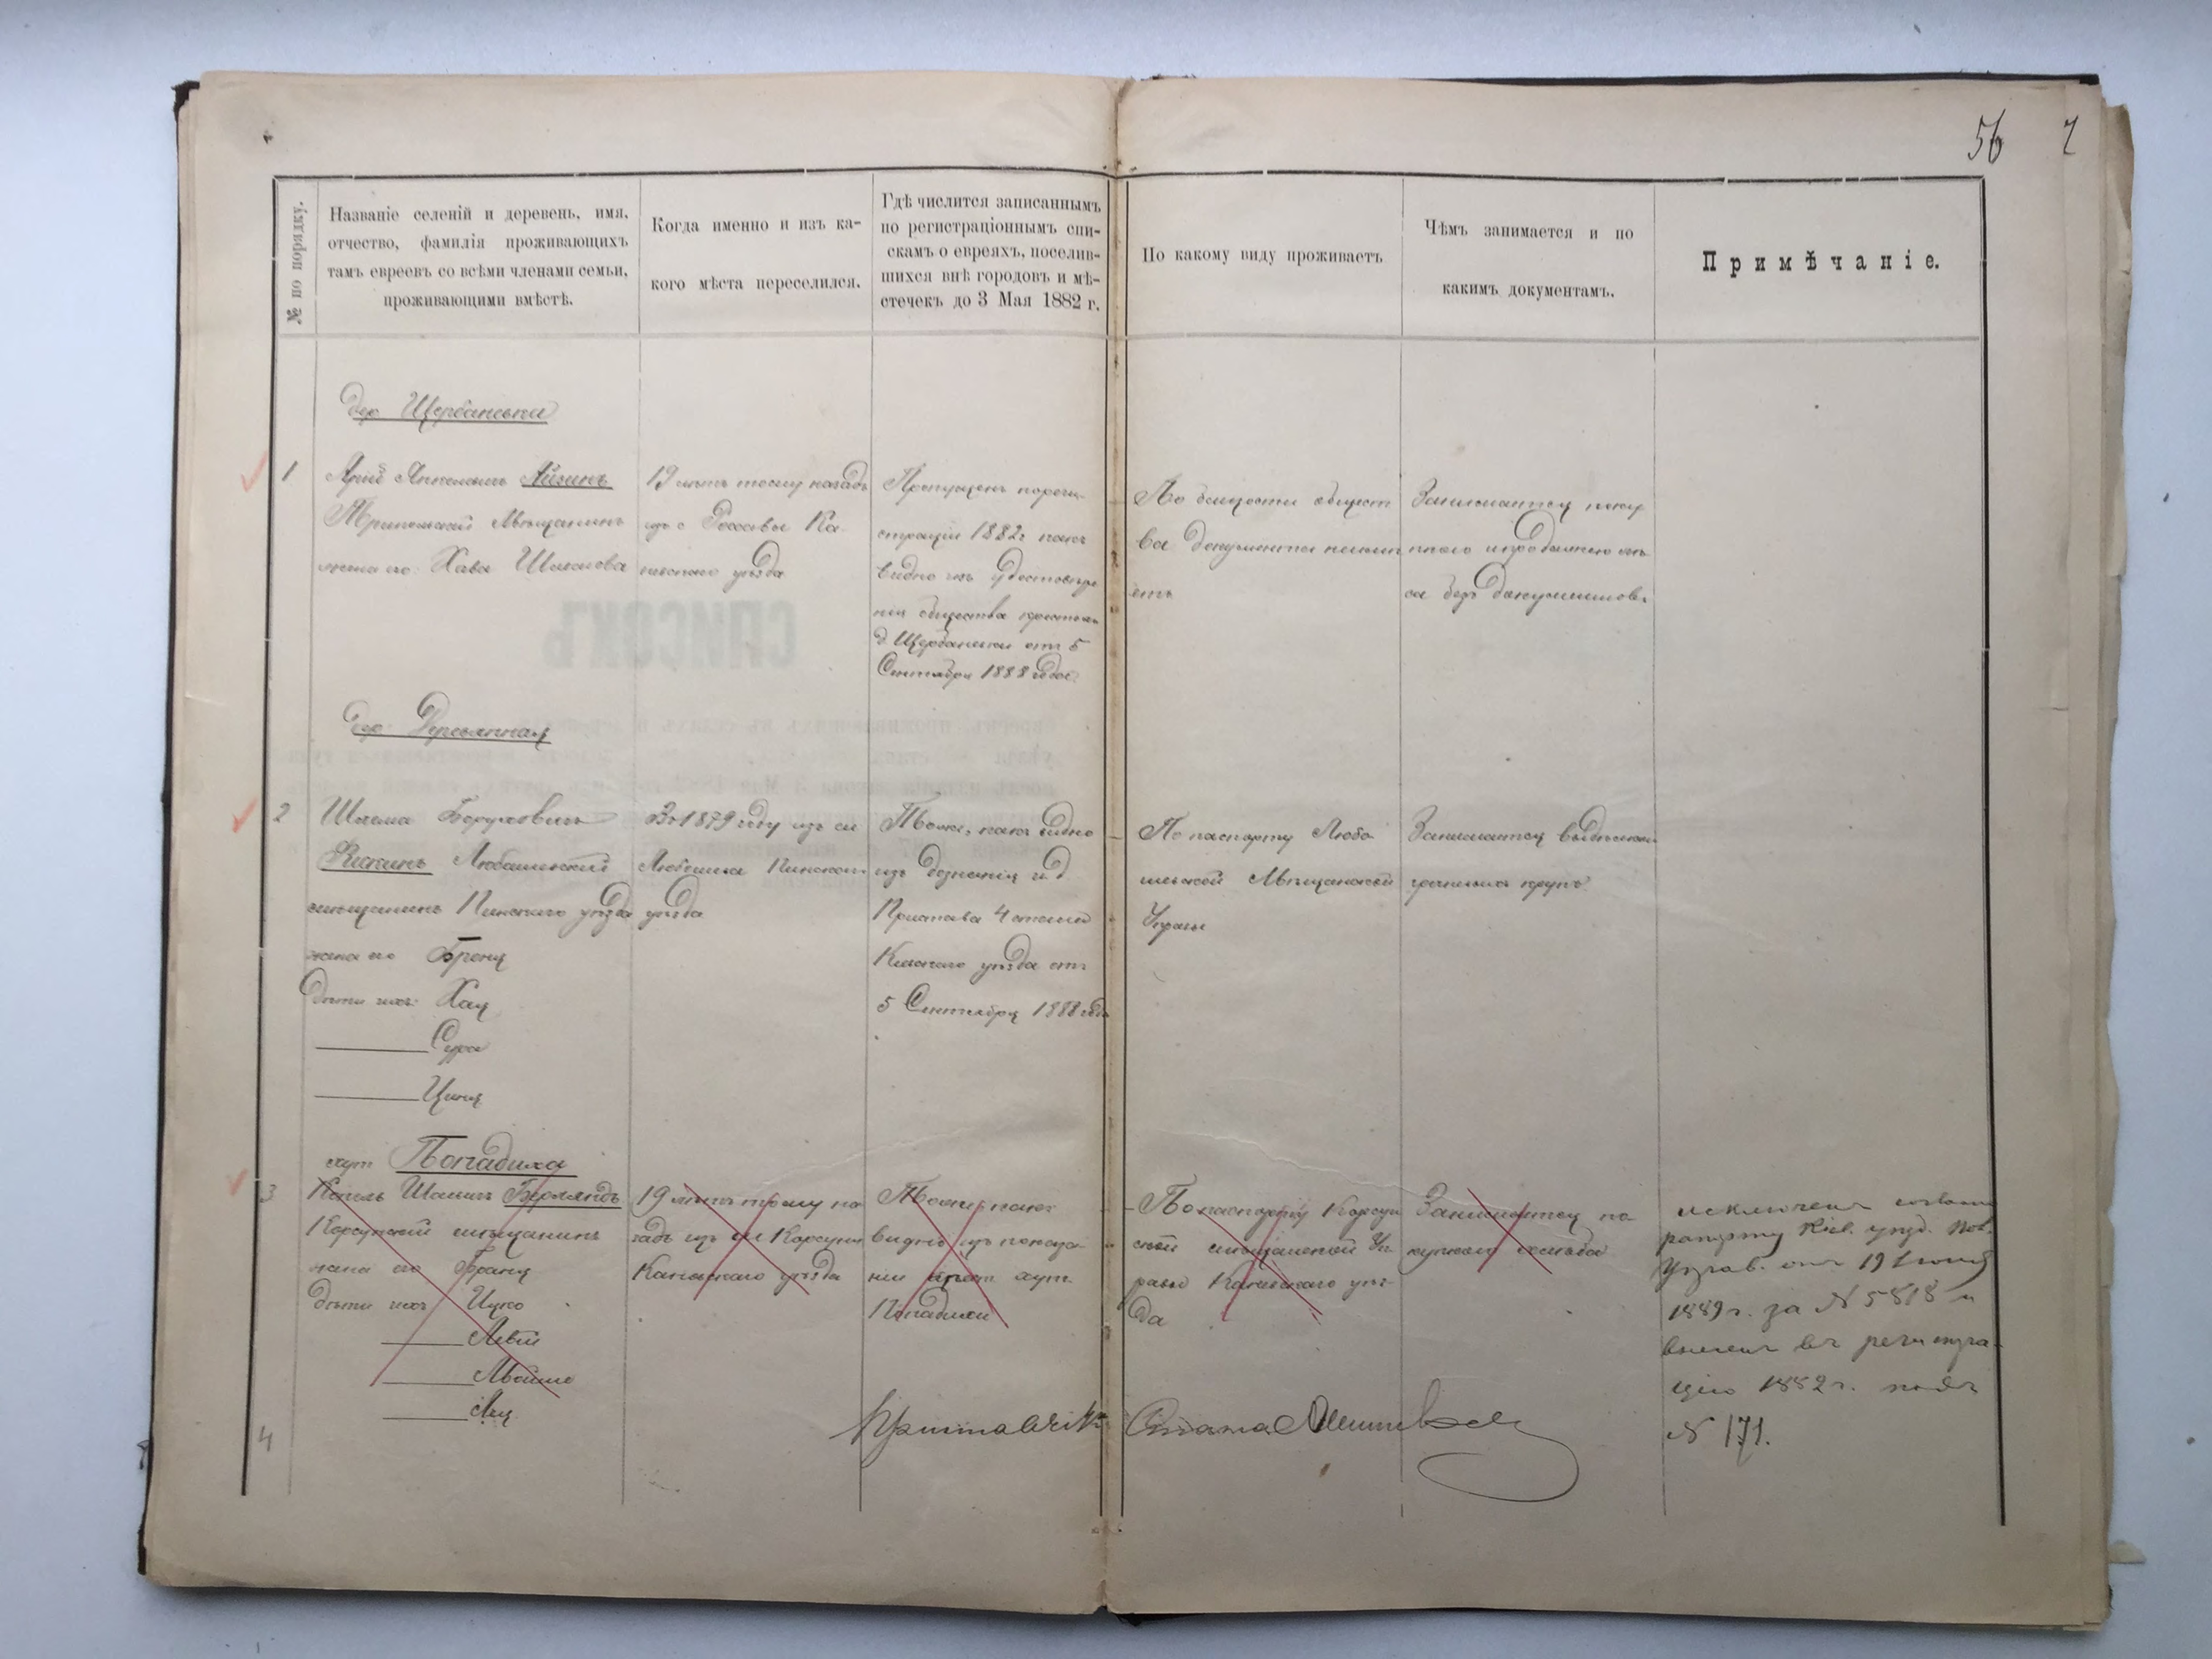 56
№ по порядку.
Названіе селеній и деревень, имя,
отчество, фамилія проживающихъ
тамъ евреевъ со всѣми членами семьи,
проживающими вмѣстѣ.
Когда именно и изъ ка-
кого мѣста переселился.
Гдѣ числится записаннымъ
по регистраціоннымъ спи-
скамъ о евреяхъ, поселив-
шихся внѣ городовъ и мѣ-
стечекъ до 3 Мая 1882 г.
По какому виду проживаетъ
Чѣмъ занимается и по
какимъ документамъ.
Примѣчаніе.
дер. Щербановка
1
Арій Янкелевъ Айзинъ
Трипольскій Мѣщанинъ
жена его: Хава
19 лѣтъ тому назадъ
изъ с Россавы Ка-
невскаго уѣзда
Пропущенъ по реги-
страціи 1882г какъ
видно изъ удостовѣре-
нія общества крестьян
д Щербановки отъ 5
Сентября 1888 года.
По бѣдности общест
ва документа неимѣ
етъ
Занимается поку
пкою и продажею
безъ документовъ
СПИСОКЪ
дер. Деревянная
2
Шлема Боруховичъ
Любашевскій
мѣщанинъ Пинскаго уѣзда
жена его Броня
дѣти ихъ: Хая
Сура
Ципя
Въ 1879 году изъ м
Любешова Пинскаго
уѣзда
Тоже, какъ видно
изъ дознанія и. д
Пристава 4 стана
Кіевскаго уѣзда отъ
5 Сентября 1888 года
По паспорту Любе
шевской Мѣщанской
Управы
Занимается выдѣлкою
гречневыхъ крупъ.
хут Попадиха
3
Копель Шаинъ Берляндъ
Корсунскій мѣщанинъ
жена его Франя
дѣти ихъ Ицко
Лейя
Мойше
Лея
19 лѣтъ тому на-
задъ изъ м Корсуня
Каневскаго уѣзда
Тоже, какъ
видно изъ показа-
нія крест. хут.
Попадихи
По паспорту Корсун
ской мѣщанской Уп
равы Каневскаго уѣз-
да
Занимается по-
купкою
исключенъ согласно
рапорту Кіев. уѣзд. Пол.
Управ. отъ 19 Іюня
1889 г. за № 5818 и
внесенъ въ регистра-
цію 1882 г. подъ
№ 171.
4
Приставъ 4го Стана